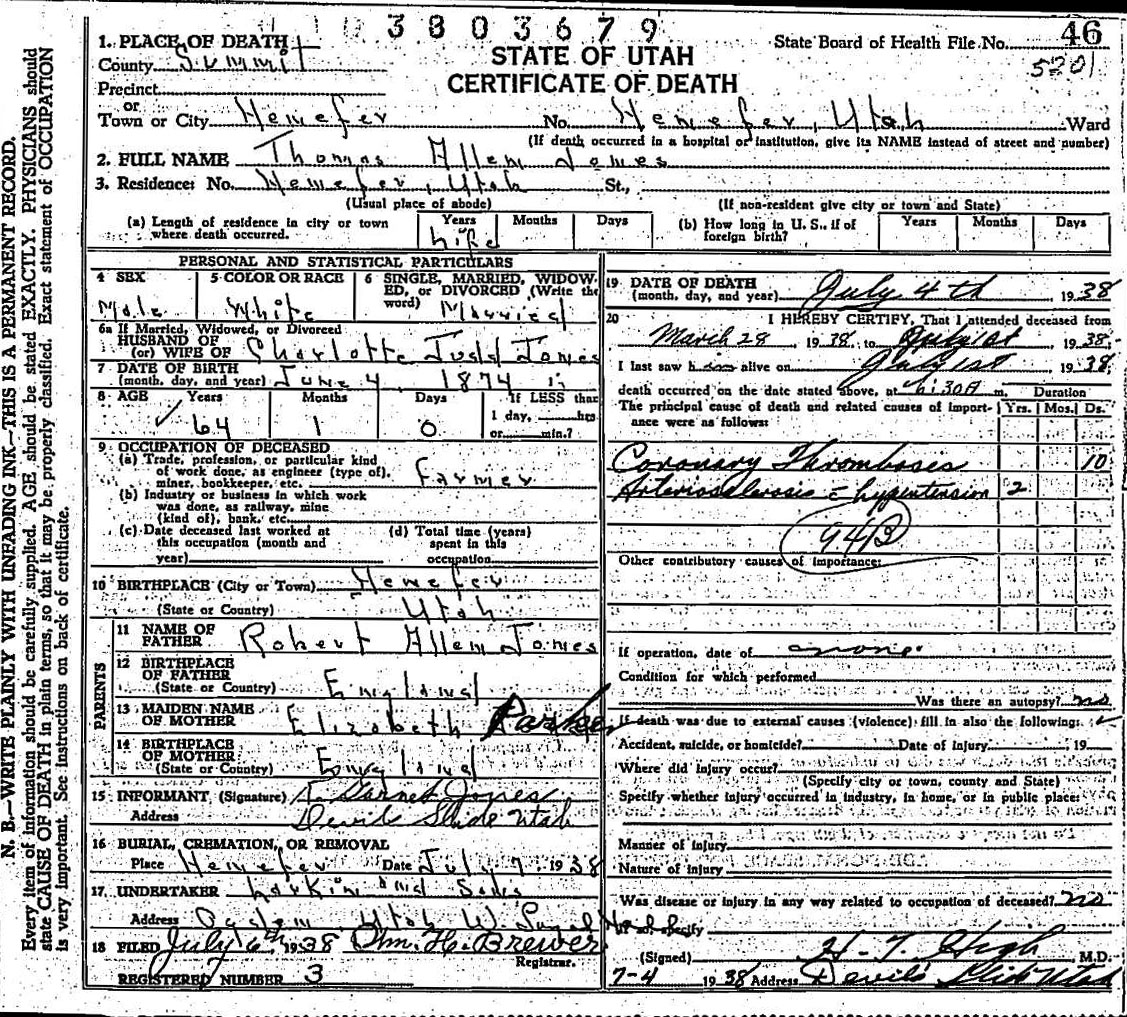 3803679
1. PLACE OF DEATH
County Summit
Precinct
or
Town or City Henefer No. Henefer, Utah Ward
(If death occurred in a hospital or institution, give its NAME instead of street and number)
STATE OF UTAH
CERTIFICATE OF DEATH
State Board of Health File No. 46
5201
2. FULL NAME Thomas Allen Jones
3. Residence: No. Henefer, Utah St.,
(Usual place of abode) (If non-resident give city or town and State)
(a) Length of residence in city or town where death occurred. Years Months Days
Life
(b) How long in U. S., if of foreign birth? Years Months Days
PERSONAL AND STATISTICAL PARTICULARS
4 SEX 5 COLOR OR RACE 6 SINGLE, MARRIED, WIDOW-
ED, or DIVORCED (Write the
word)
Male White Married
6a If Married, Widowed, or Divorced
HUSBAND OF
(or) WIFE OF Charlotte Judd Jones
7 DATE OF BIRTH
(month, day, and year) June 4, 1874
8 AGE Years Months Days If LESS than
1 day, hrs
or min.?
64 1 0
9 OCCUPATION OF DECEASED
(a) Trade, profession, or particular kind
of work done, as engineer (type of),
miner, bookkeeper, etc. Farmer
(b) Industry or business in which work
was done, as railway, mine
(kind of), bank, etc.
(c) Date deceased last worked at
this occupation (month and
year)
(d) Total time (years)
spent in this
occupation
10 BIRTHPLACE (City or Town) Henefer
(State or Country) Utah
PARENTS
11 NAME OF
FATHER Robert Allen Jones
12 BIRTHPLACE
OF FATHER
(State or Country) England
13 MAIDEN NAME
OF MOTHER Elizabeth Parker
14 BIRTHPLACE
OF MOTHER
(State or Country) England
15 INFORMANT (Signature) T Garnet Jones
Address Devils Slide Utah
16 BURIAL, CREMATION, OR REMOVAL
Place Henefer Date July 7 1938
17 UNDERTAKER Larkin and Sons
Address Ogden Utah W.
18 FILED July 6th 1938 Chm. H. Brewer
Registrar.
REGISTERED NUMBER 3
19 DATE OF DEATH
(month, day, and year) July 4th, 1938
20 I HEREBY CERTIFY, That I attended deceased from
March 28 1938, to July 1st, 1938,
I last saw him alive on July 1st 1938,
death occurred on the date stated above, at 6:30A m. Duration
The principal cause of death and related causes of import-
ance were as follows: Yrs. Mos. Ds.
Coronary Thromboses 10
Arteriosclerosis = hypentension 2
94B
Other contributory causes of importance:
If operation, date of none
Condition for which performed
Was there an autopsy? no
If death was due to external causes (violence) fill in also the following:
Accident, suicide, or homicide? Date of injury 19
Where did injury occur?
(Specify city or town, county and State)
Specify whether injury occurred in industry, in home, or in public place:
Manner of injury
Nature of injury
Was disease or injury in any way related to occupation of deceased? no
If so, specify
(Signed) H. T. High, M.D.
7-4 1938 Address Devils Slide Utah
N. B.—WRITE PLAINLY WITH UNFADING INK—THIS IS A PERMANENT RECORD.
Every item of information should be carefully supplied. AGE should be stated EXACTLY. PHYSICIANS should
state CAUSE OF DEATH in plain terms, so that it may be properly classified. Exact statement of OCCUPATION
is very important. See instructions on back of certificate.